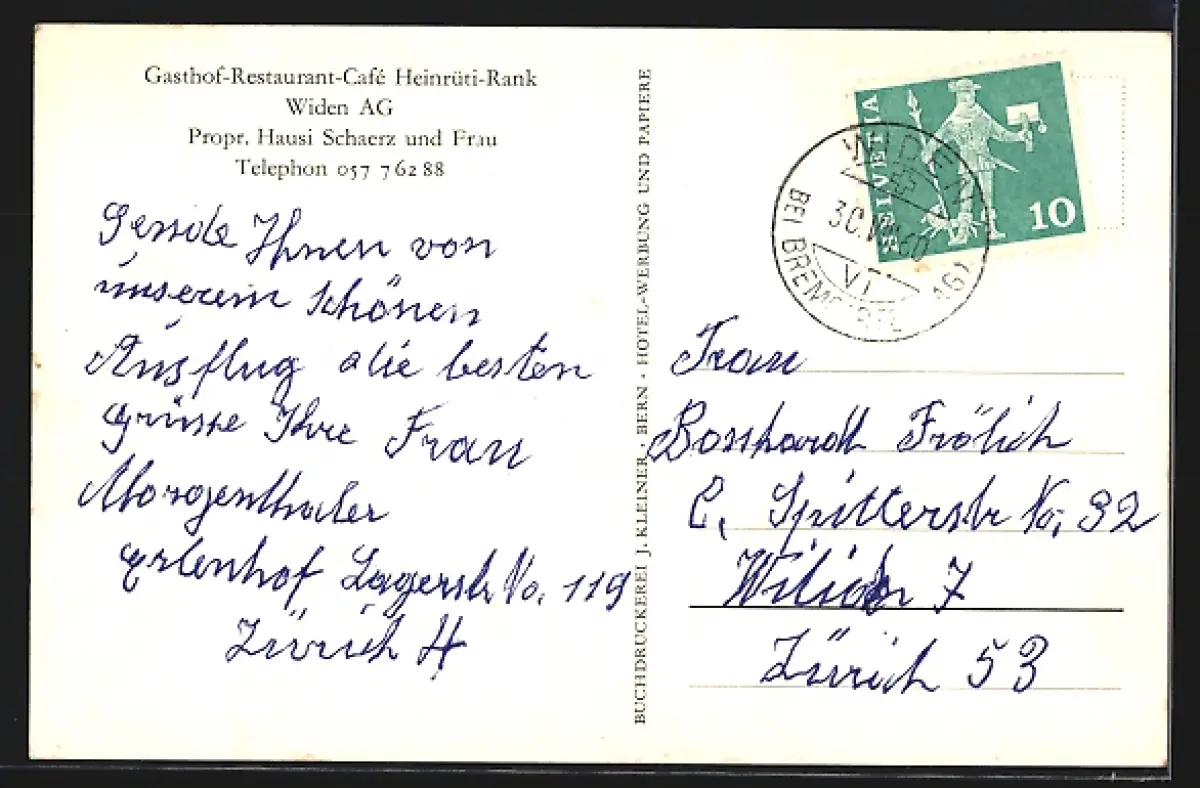 Gasthof-Restaurant-Café Heinrüti-Rank
Widen AG
Propr. Hausi Schaerz und Frau
Telephon 057 7 62 88
Sende Ihnen von
unserem schönen
Ausflug die besten
Grüsse Ihre Frau
Morgenthaler
Erlenhof Lagerstr No. 119
Zürich 4
BUCHDRUCKEREI J. KLEINER · BERN · HOTEL-WERBUNG UND PAPIERE
HELVETIA
10
WIDEN
30. 60
VI
BEI BREMGARTEN
AG)
Frau
Bosshardt Frölich
C. Spitterstr No. 92
7
Zürich 53